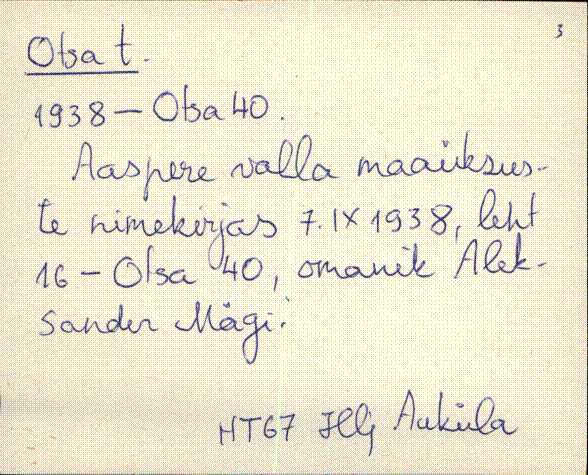 3
Otsa t.
1938 – Otsa 40.
Aaspere valla maaüksus-
te nimekirjas 7.IX 1938, leht
16 – Otsa 40, omanik Alek-
sander Mägi.
HT67 Hlj Auküla